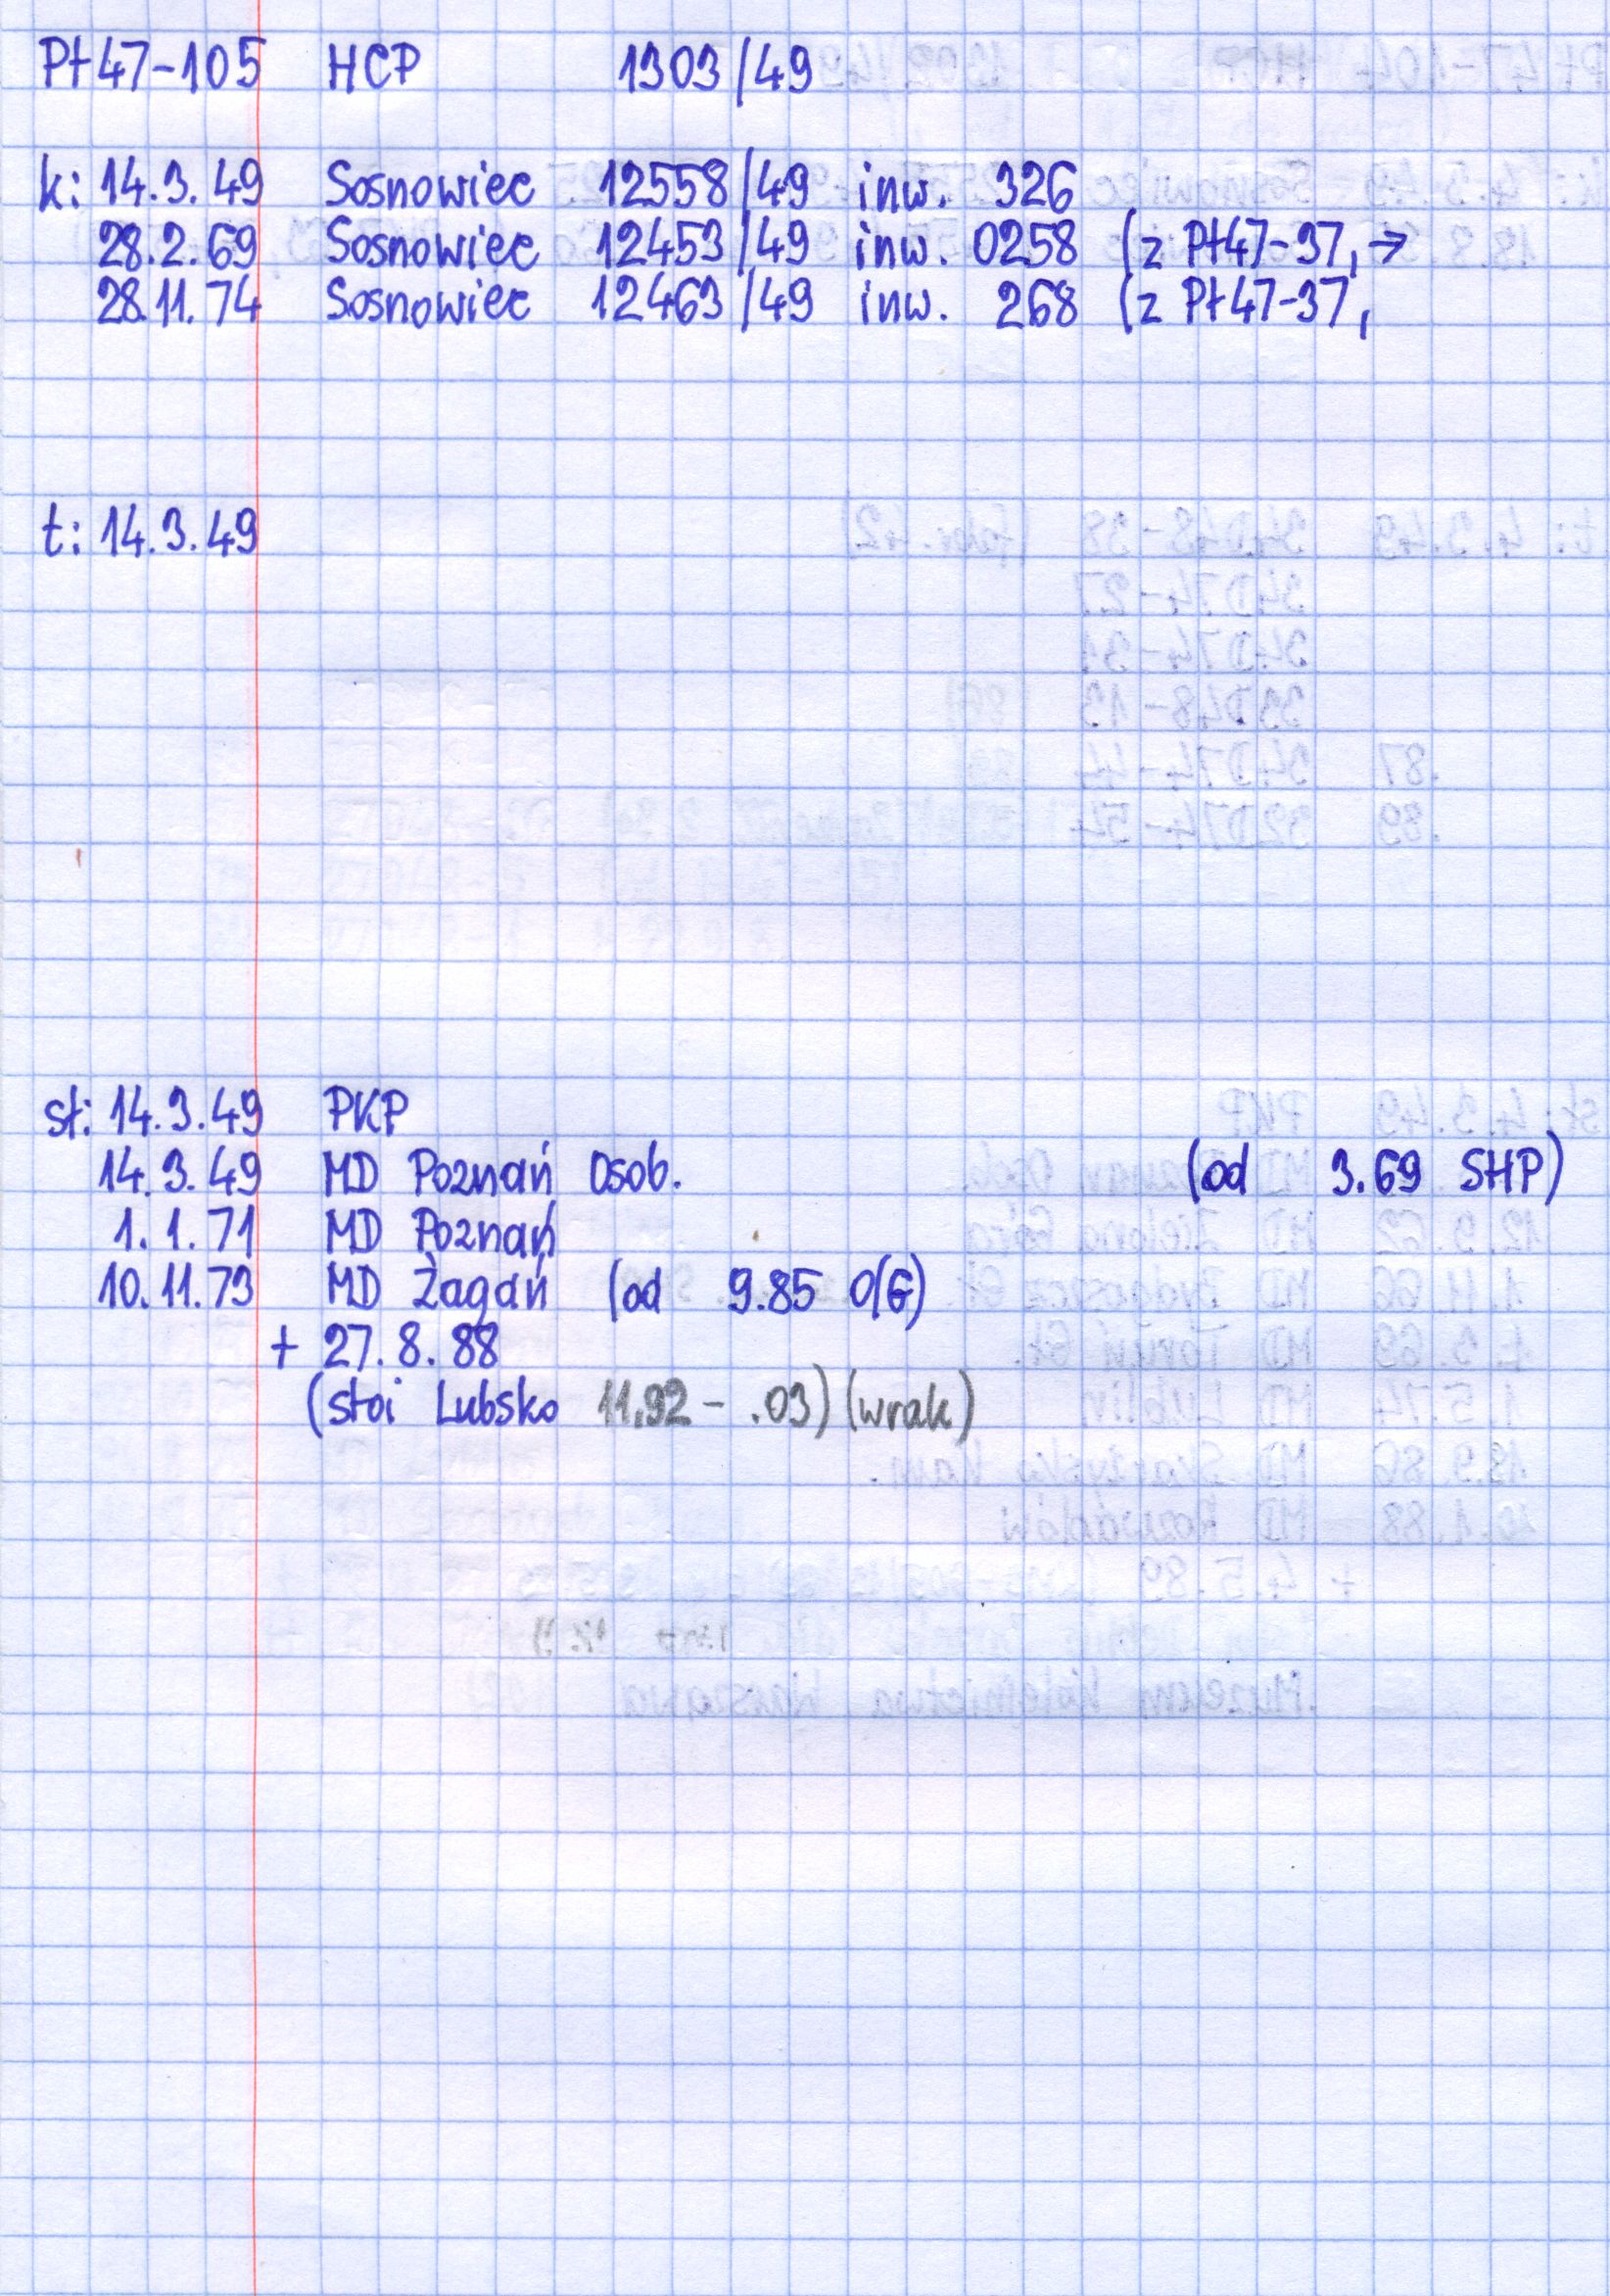 Pt47-105 HCP 1303/49
k: 14.3.49 Sosnowiec 12558/49 inw. 326
28.2.69 Sosnowiec 12453/49 inw. 0258 (z Pt47-37, →
28.11.74 Sosnowiec 12463/49 inw. 268 (z Pt47-37,
t: 14.3.49
st: 14.3.49 PKP
14.3.49 MD Poznań Osob. (od 3.69 SHP)
1.1.71 MD Poznań
10.11.73 MD Żagań (od 9.85 O(G)
+ 27.8.88
(stoi Lubsko 11.92 - .03) (wrak)